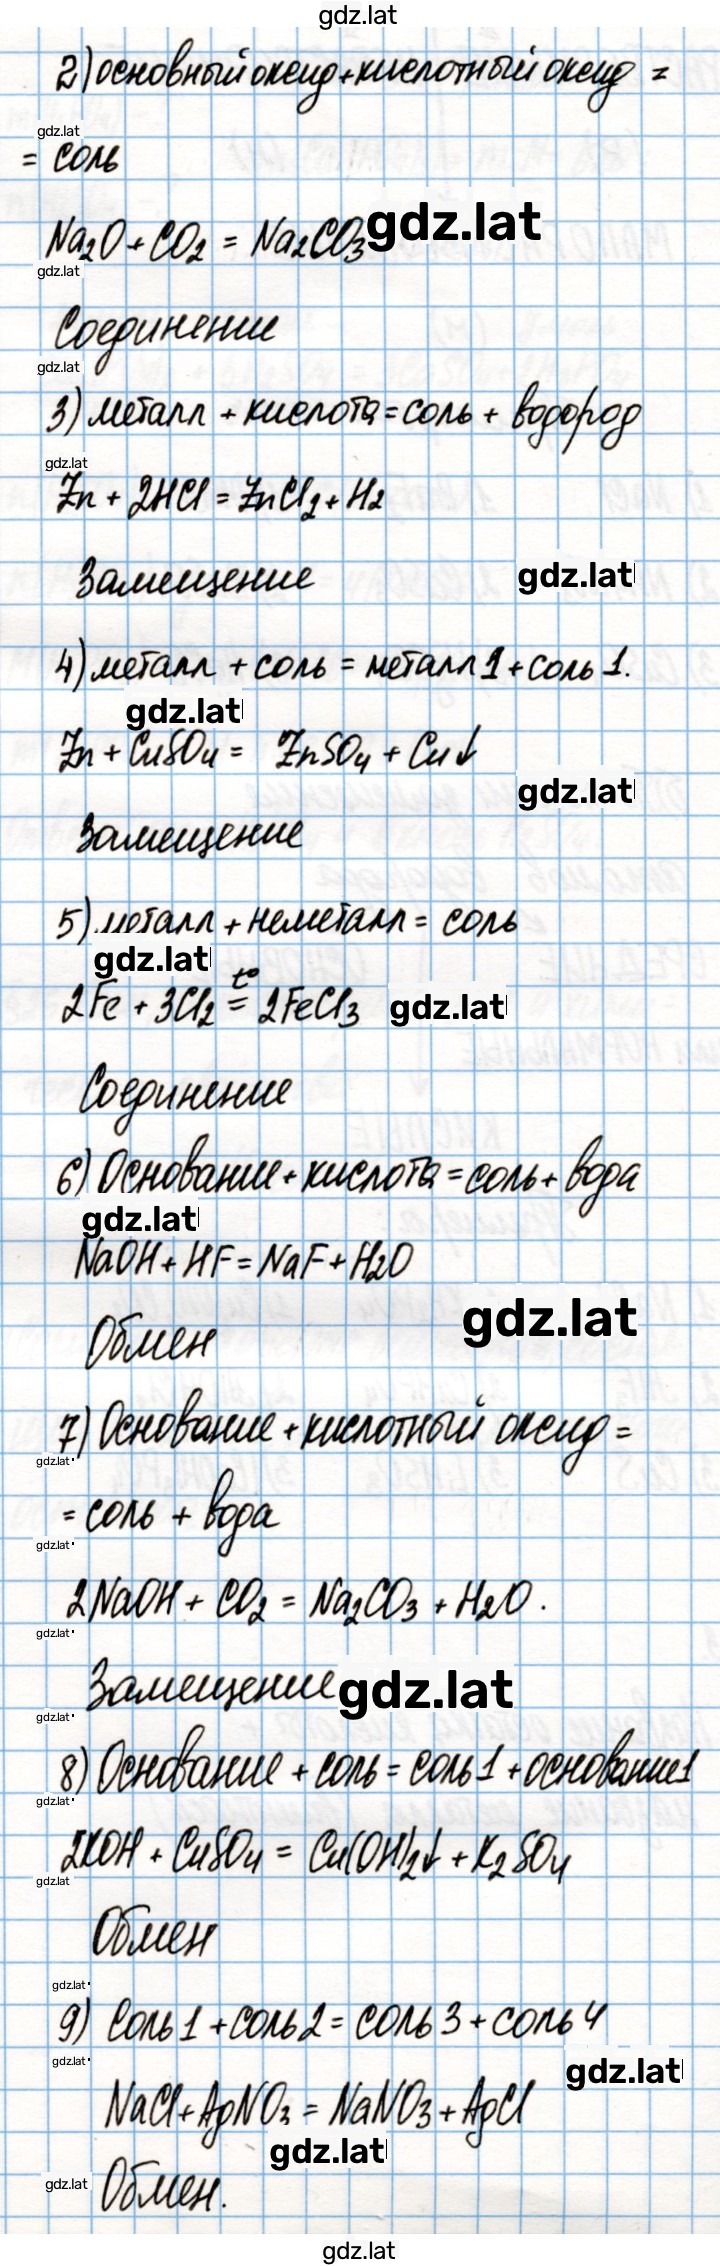 gdz.lat
2) основный оксид + кислотный оксид =
gdz.lat
= соль
Na₂O + CO₂ = Na₂CO₃ gdz.lat
gdz.lat
Соединение
gdz.lat
3) металл + кислота = соль + водород
gdz.lat
Zn + 2HCl = ZnCl₂ + H₂
Замещение gdz.lat
4) металл + соль = металл 1 + соль 1.
gdz.lat
Zn + CuSO₄ = ZnSO₄ + Cu↓
gdz.lat
Замещение
5) металл + неметалл = соль
gdz.lat
t°
2Fe + 3Cl₂ = 2FeCl₃ gdz.lat
Соединение
6) Основание + кислота = соль + вода
gdz.lat
NaOH + HF = NaF + H₂O
gdz.lat
Обмен
7) Основание + кислотный оксид =
gdz.lat
= соль + вода
gdz.lat
2NaOH + CO₂ = Na₂CO₃ + H₂O.
gdz.lat
Замещение gdz.lat
gdz.lat
8) Основание + соль = соль 1 + основание 1
gdz.lat
2KOH + CuSO₄ = Cu(OH)₂↓ + K₂SO₄
gdz.lat
Обмен
gdz.lat
9) Соль 1 + соль 2 = соль 3 + соль 4
gdz.lat
gdz.lat
NaCl + AgNO₃ = NaNO₃ + AgCl
gdz.lat
gdz.lat
Обмен.
gdz.lat